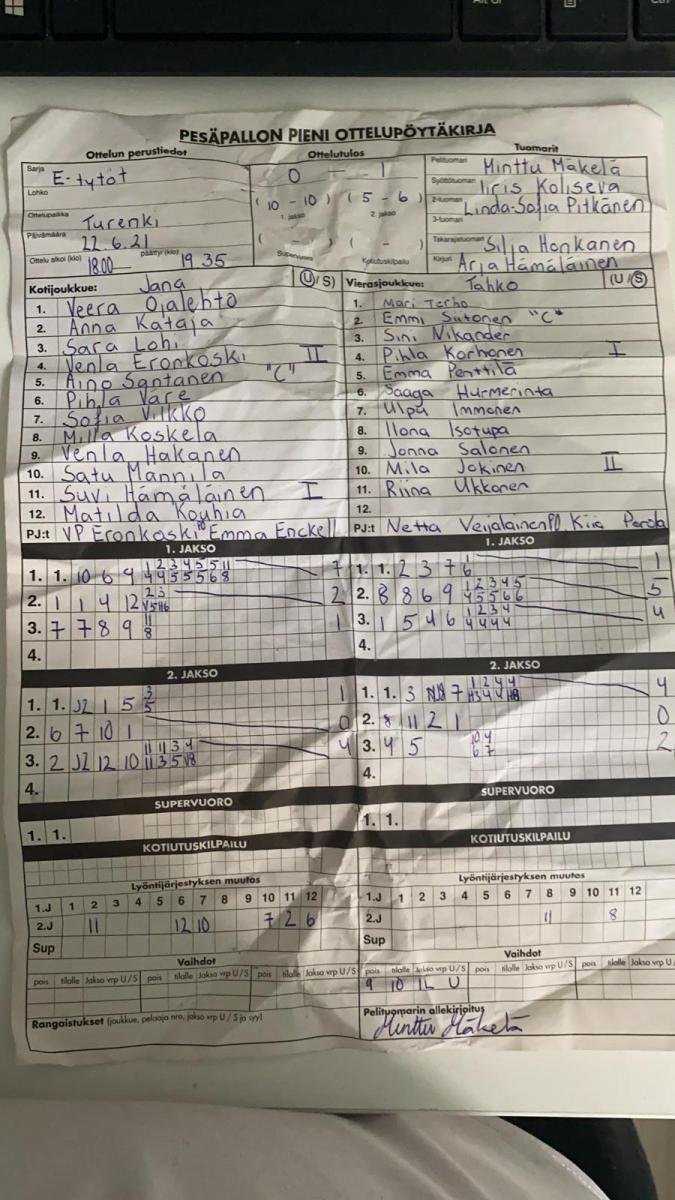 PESÄPALLON PIENI OTTELUPÖYTÄKIRJA
Ottelun perustiedot
Ottelutulos
Tuomarit
Sarja E-tytöt
0 - 1
Pelituomari Minttu Mäkelä
Lohko
(10 - 10) (5 - 6)
Syöttötuomari Iiris Koliseva
1. jakso 2. jakso
2-tuomari Linda-Sofia Pitkänen
Ottelupaikka Turenki
3-tuomari
Päivämäärä 22.6.21
( - ) ( - )
Takarajatuomari Silja Honkanen
Ottelu alkoi (klo) 18.00 päättyi (klo) 19.35
Supervuoro Kotiutuskilpailu
Kirjuri Arja Hämäläinen
Kotijoukkue: Jana (U/S)
Vierasjoukkue: Tahko (U/S)
1. Veera Ojalehto
1. Mari Terho
2. Anna Kataja
2. Emmi Sutonen "C"
3. Sara Lohi
3. Sini Nikander
4. Venla Eronkoski II
4. Pihla Korhonen I
5. Aino Santanen "C"
5. Emma Penttilä
6. Pihla Vare
6. Saaga Hurmerinta
7. Sofia Vilkko
7. Ulpu Immonen
8. Milla Koskela
8. Ilona Isotupa
9. Venla Hakanen
9. Jonna Salonen
10. Satu Mannila
10. Mila Jokinen II
11. Suvi Hämäläinen I
11. Riina Ukkonen
12. Matilda Kouhia
12.
PJ:t VP Eronkoski PJ Emma Enckell
PJ:t Netta Veijalainen PJ Kiia
1. JAKSO
1. JAKSO
1. 1. 10 6 9 1 2 3 4 5 5 11 7
4 4 5 5 5 6 8
1. 1. 2 3 7 6 1
2. 1 1 4 12 2 3 2
2. 8 8 6 9 1 2 3 4 5 5
4 5 5 6 6
3. 7 7 8 9 11
8
3. 1 5 4 6 1 2 3 4 4
4 4 4 4
4.
4.
2. JAKSO
2. JAKSO
1. 1. J2 1 5 3 1
5
1. 1. 3 7 1 2 4 4 4
2. 6 7 10 1 0
2. 8 11 2 1 0
3. 2 J2 12 10 11 11 3 4 4
11 3 5 V8
3. 4 5 10 4 2
6 7
4.
4.
SUPERVUORO
SUPERVUORO
1. 1.
1. 1.
KOTIUTUSKILPAILU
KOTIUTUSKILPAILU
Lyöntijärjestyksen muutos
Lyöntijärjestyksen muutos
1.J 1 2 3 4 5 6 7 8 9 10 11 12
1.J 1 2 3 4 5 6 7 8 9 10 11 12
2.J 11 12 10 7 2 6
2.J 11 8
Sup
Sup
Vaihdot
Vaihdot
pois tilalle Jakso vrp U/S pois tilalle Jakso vrp U/S pois tilalle Jakso vrp U/S
pois tilalle Jakso vrp U/S pois tilalle Jakso vrp U/S pois tilalle Jakso vrp U
9 10 1L U
Rangaistukset (joukkue, pelaaja nro, jakso vrp U / S ja syy)
Pelituomarin allekirjoitus
Minttu Mäkelä